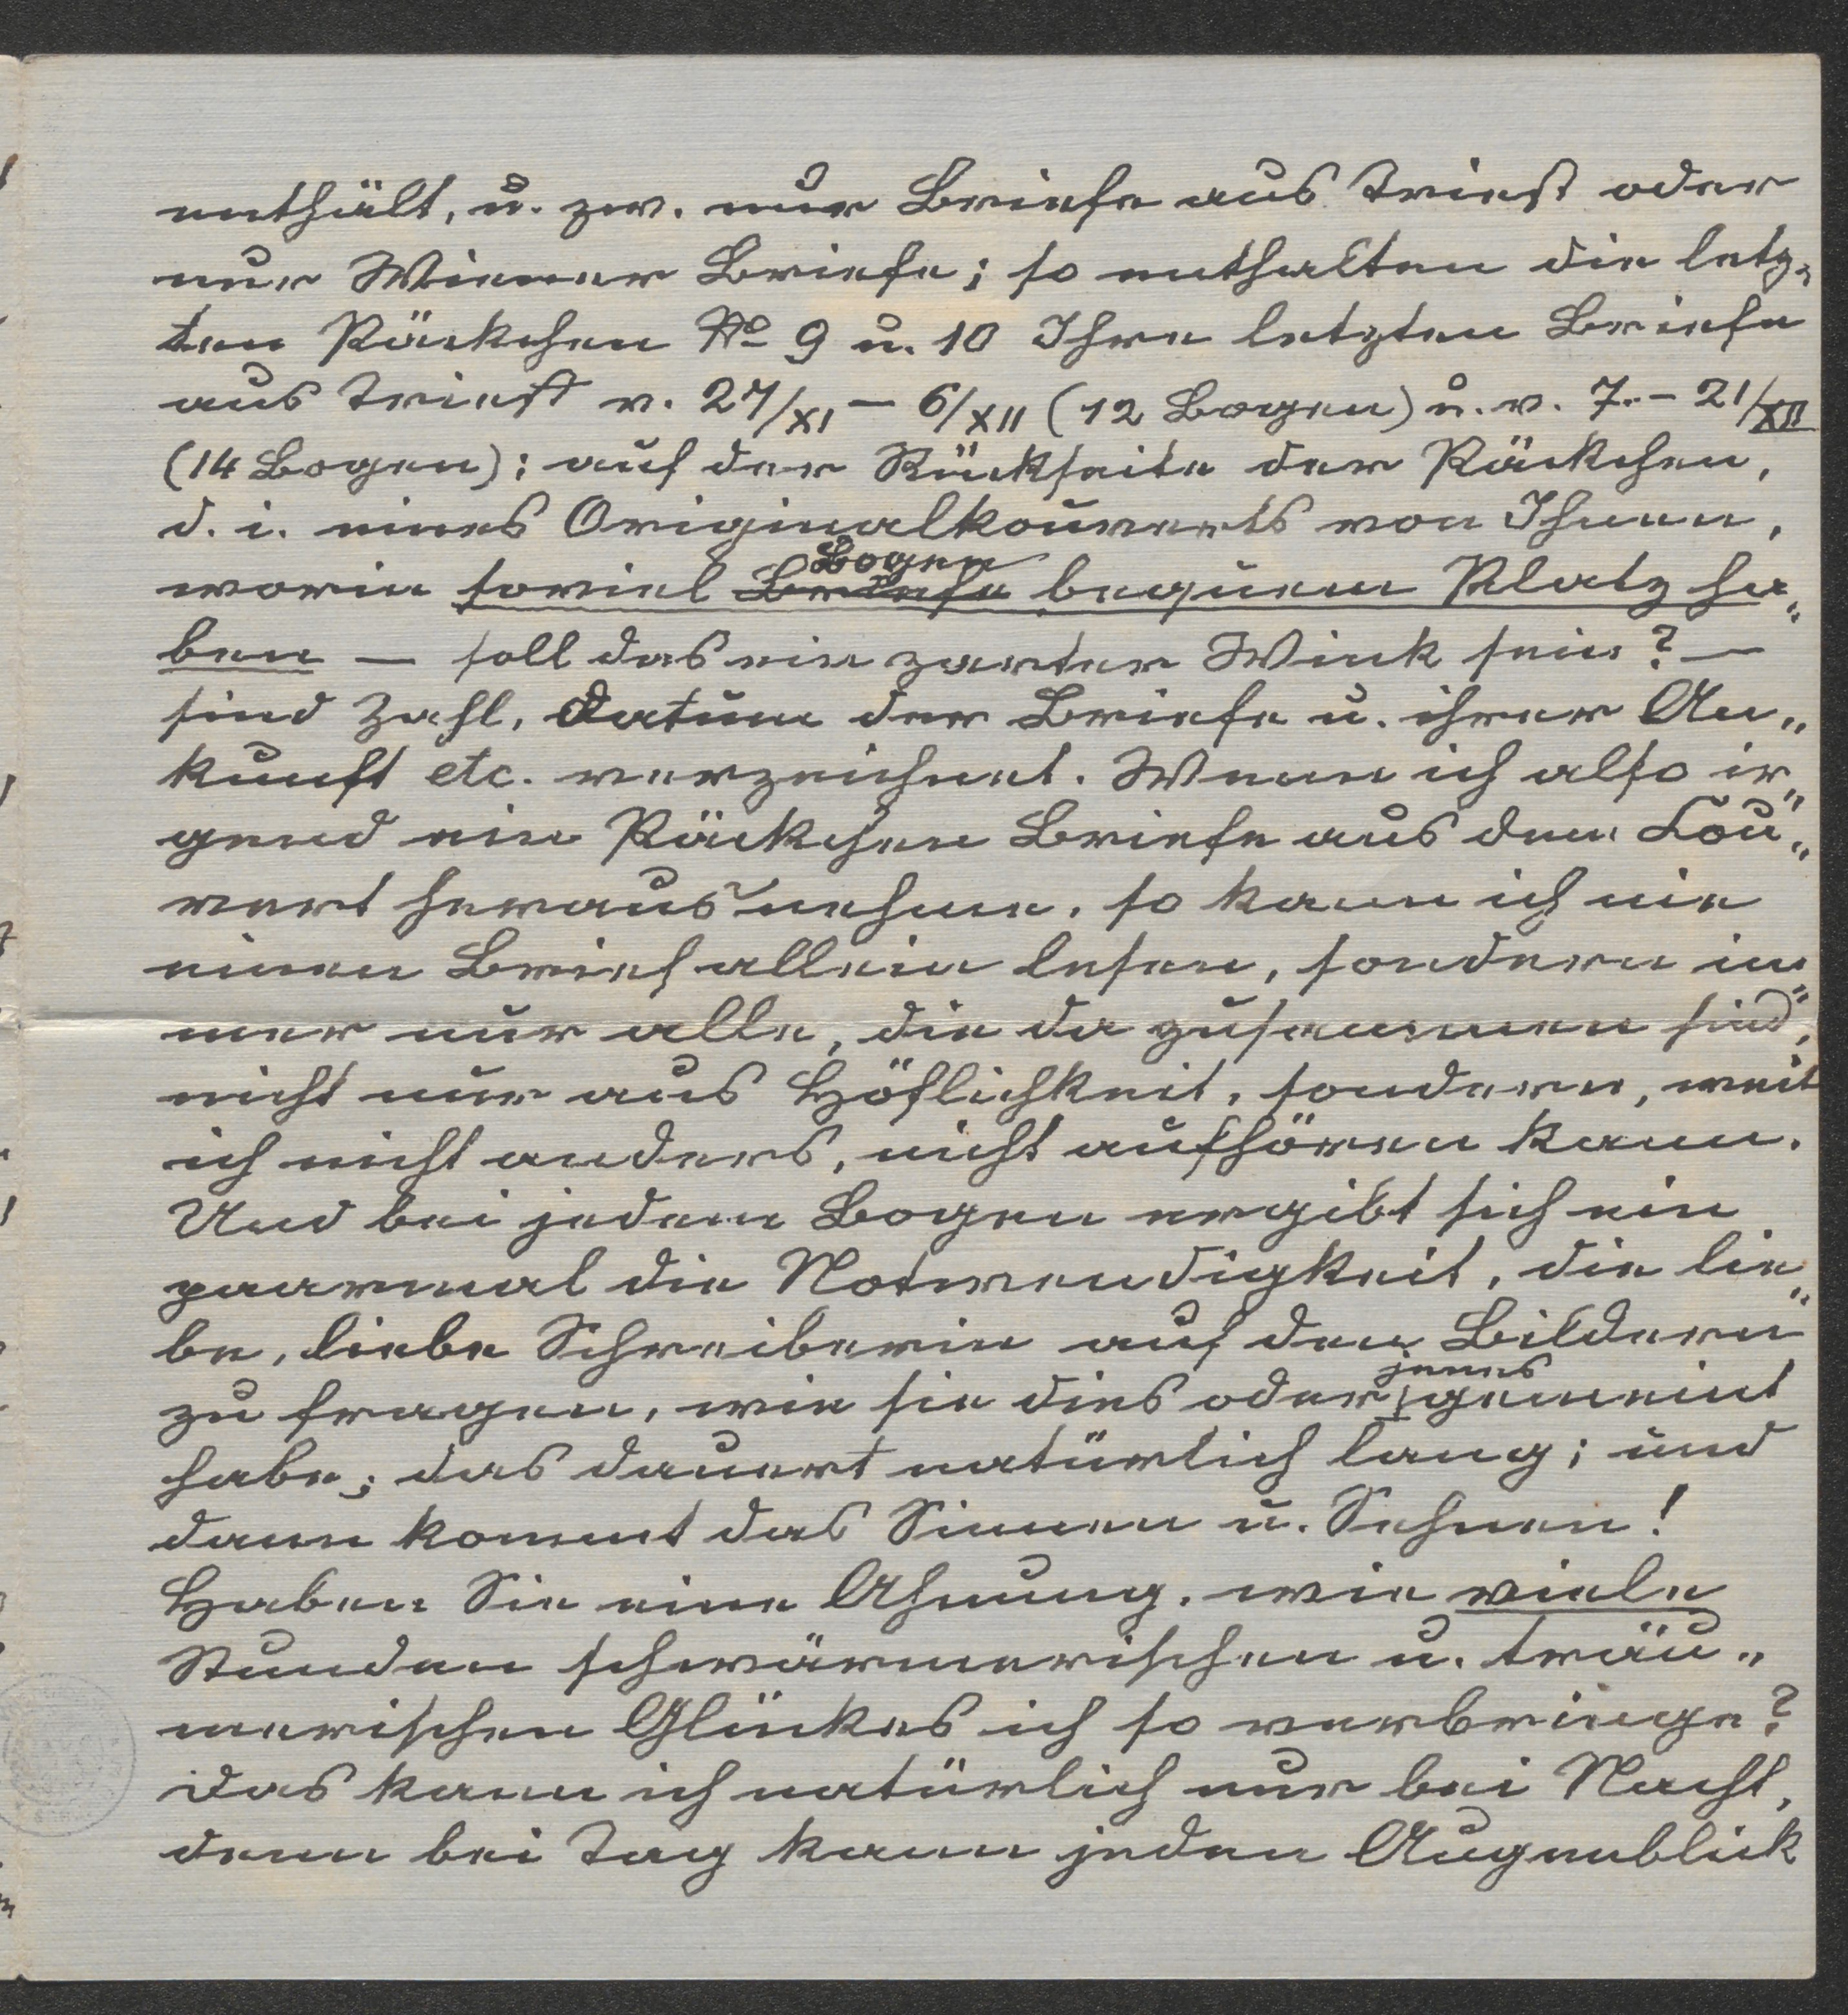 enthält, u. zw. nur Briefe aus Triest oder
nur Wiener Briefe; so enthalten die letz=
ten Päckchen No 9 u. 10 Ihre letzten Briefe
aus Triest v. 27/XI – 6/XII (12 Bogen) u. v. 7. – 21/XII
(14 Bogen); auf der Rückseite der Päckchen,
d. i. eines Originalkouverts von Ihnen,
worin soviel Briefe Bogen bequem Platz ha„
ben — soll das ein zarter Wink sein? —
sind Zahl, Datum der Briefe u. ihrer An„
kunft etc. verzeichnet. Wenn ich also ir„
gend ein Päckchen Briefe aus dem Cou„
vert herausnehme, so kann ich nie
einen Brief allein lesen, sondern im„
mer nur alle, die da zusammen sind,
nicht nur aus Höflichkeit, sondern, weil
ich nicht anders, nicht aufhören kann.
Und bei jedem Bogen ergibt sich ein
paarmal die Notwendigkeit, die lie„
be, liebe Schreiberin auf den Bildern
zu fragen, wie sie dies oder jenes gemeint
habe; das dauert natürlich lang; und
dann kommt das Sinnen u. Sehnen!
Haben Sie eine Ahnung, wie viele
Stunden schwärmerischen u. träu„
merischen Glückes ich so verbringe?
Das kann ich natürlich nur bei Nacht,
denn bei Tag kann jeden Augenblick